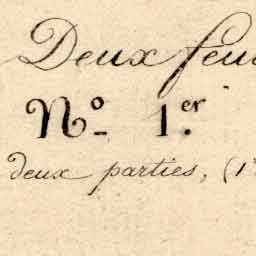 Deux feu
Nº 1.er
deux parties, (1